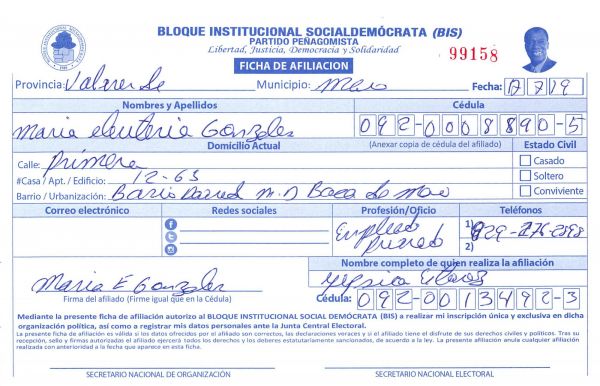 BLOQUE INSTITUCIONAL SOCIALDEMÓCRATA (BIS)
PARTIDO PEÑAGOMISTA
Libertad, Justicia, Democracia y Solidaridad
99158
FICHA DE AFILIACION
Provincia: Valverde Municipio: Mao Fecha: 17 7 19
Nombres y Apellidos Cédula
Maria eleuteria Gonzales 092-0008890-5
Domicilio Actual (Anexar copia de cédula del afiliado) Estado Civil
Calle: Primera Casado
#Casa / Apt. / Edificio: 12-63 Soltero
Barrio / Urbanización: Bario M. D Boca de Mao Conviviente
Correo electrónico Redes sociales Profesión/Oficio Teléfonos
Empleado Privado 1) 829-276-2898
2)
Nombre completo de quien realiza la afiliación
Maria E Gonzales
Firma del afiliado (Firme igual que en la Cédula) Cédula: 092-0013492-3
Mediante la presente ficha de afiliación autorizo al BLOQUE INSTITUCIONAL SOCIAL DEMÓCRATA (BIS) a realizar mi inscripción única y exclusiva en dicha
organización política, así como a registrar mis datos personales ante la Junta Central Electoral.
La presente ficha de afiliación es válida si los datos ofrecidos por el afiliado son correctos, las declaraciones veraces y si el afiliado tiene el disfrute de sus derechos civiles y políticos. Tras su
recepción, sello y firmas autorizadas el afiliado ejercerá todos los derechos y los deberes estatutariamente sancionados, de acuerdo a la ley. La presente afiliación anula cualquier afiliación
realizada con anterioridad a la fecha que aparece en esta ficha.
SECRETARIO NACIONAL DE ORGANIZACIÓN SECRETARIO NACIONAL ELECTORAL